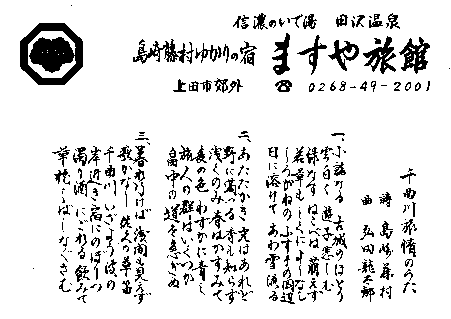 信濃のいで湯 田沢温泉
島崎藤村ゆかりの宿 ますや旅館
上田市郊外 ☎ 0268-49-2001
千曲川旅情のうた
詩 島崎藤村
曲 弘田龍太郎
一、小諸なる 古城のほとり
雲白く 遊子悲しむ
緑なす はこべは 萌えず
若草も しくによしなし
しろがねの ふすまの岡辺
日に溶けて あわ雪流る
二、あたたかき 光はあれど
野に満つる 香も知らず
浅くのみ 春はかすみて
麦の色 わずかに青し
旅人の群は いくつか
畠中の道を急ぎぬ
三、暮れ行けば 浅間も見えず
歌かなし 佐久の草笛
千曲川 いざよう波の
岸近き宿にのぼりつ
濁り酒 にごれる飲みて
草枕しばしなぐさむ